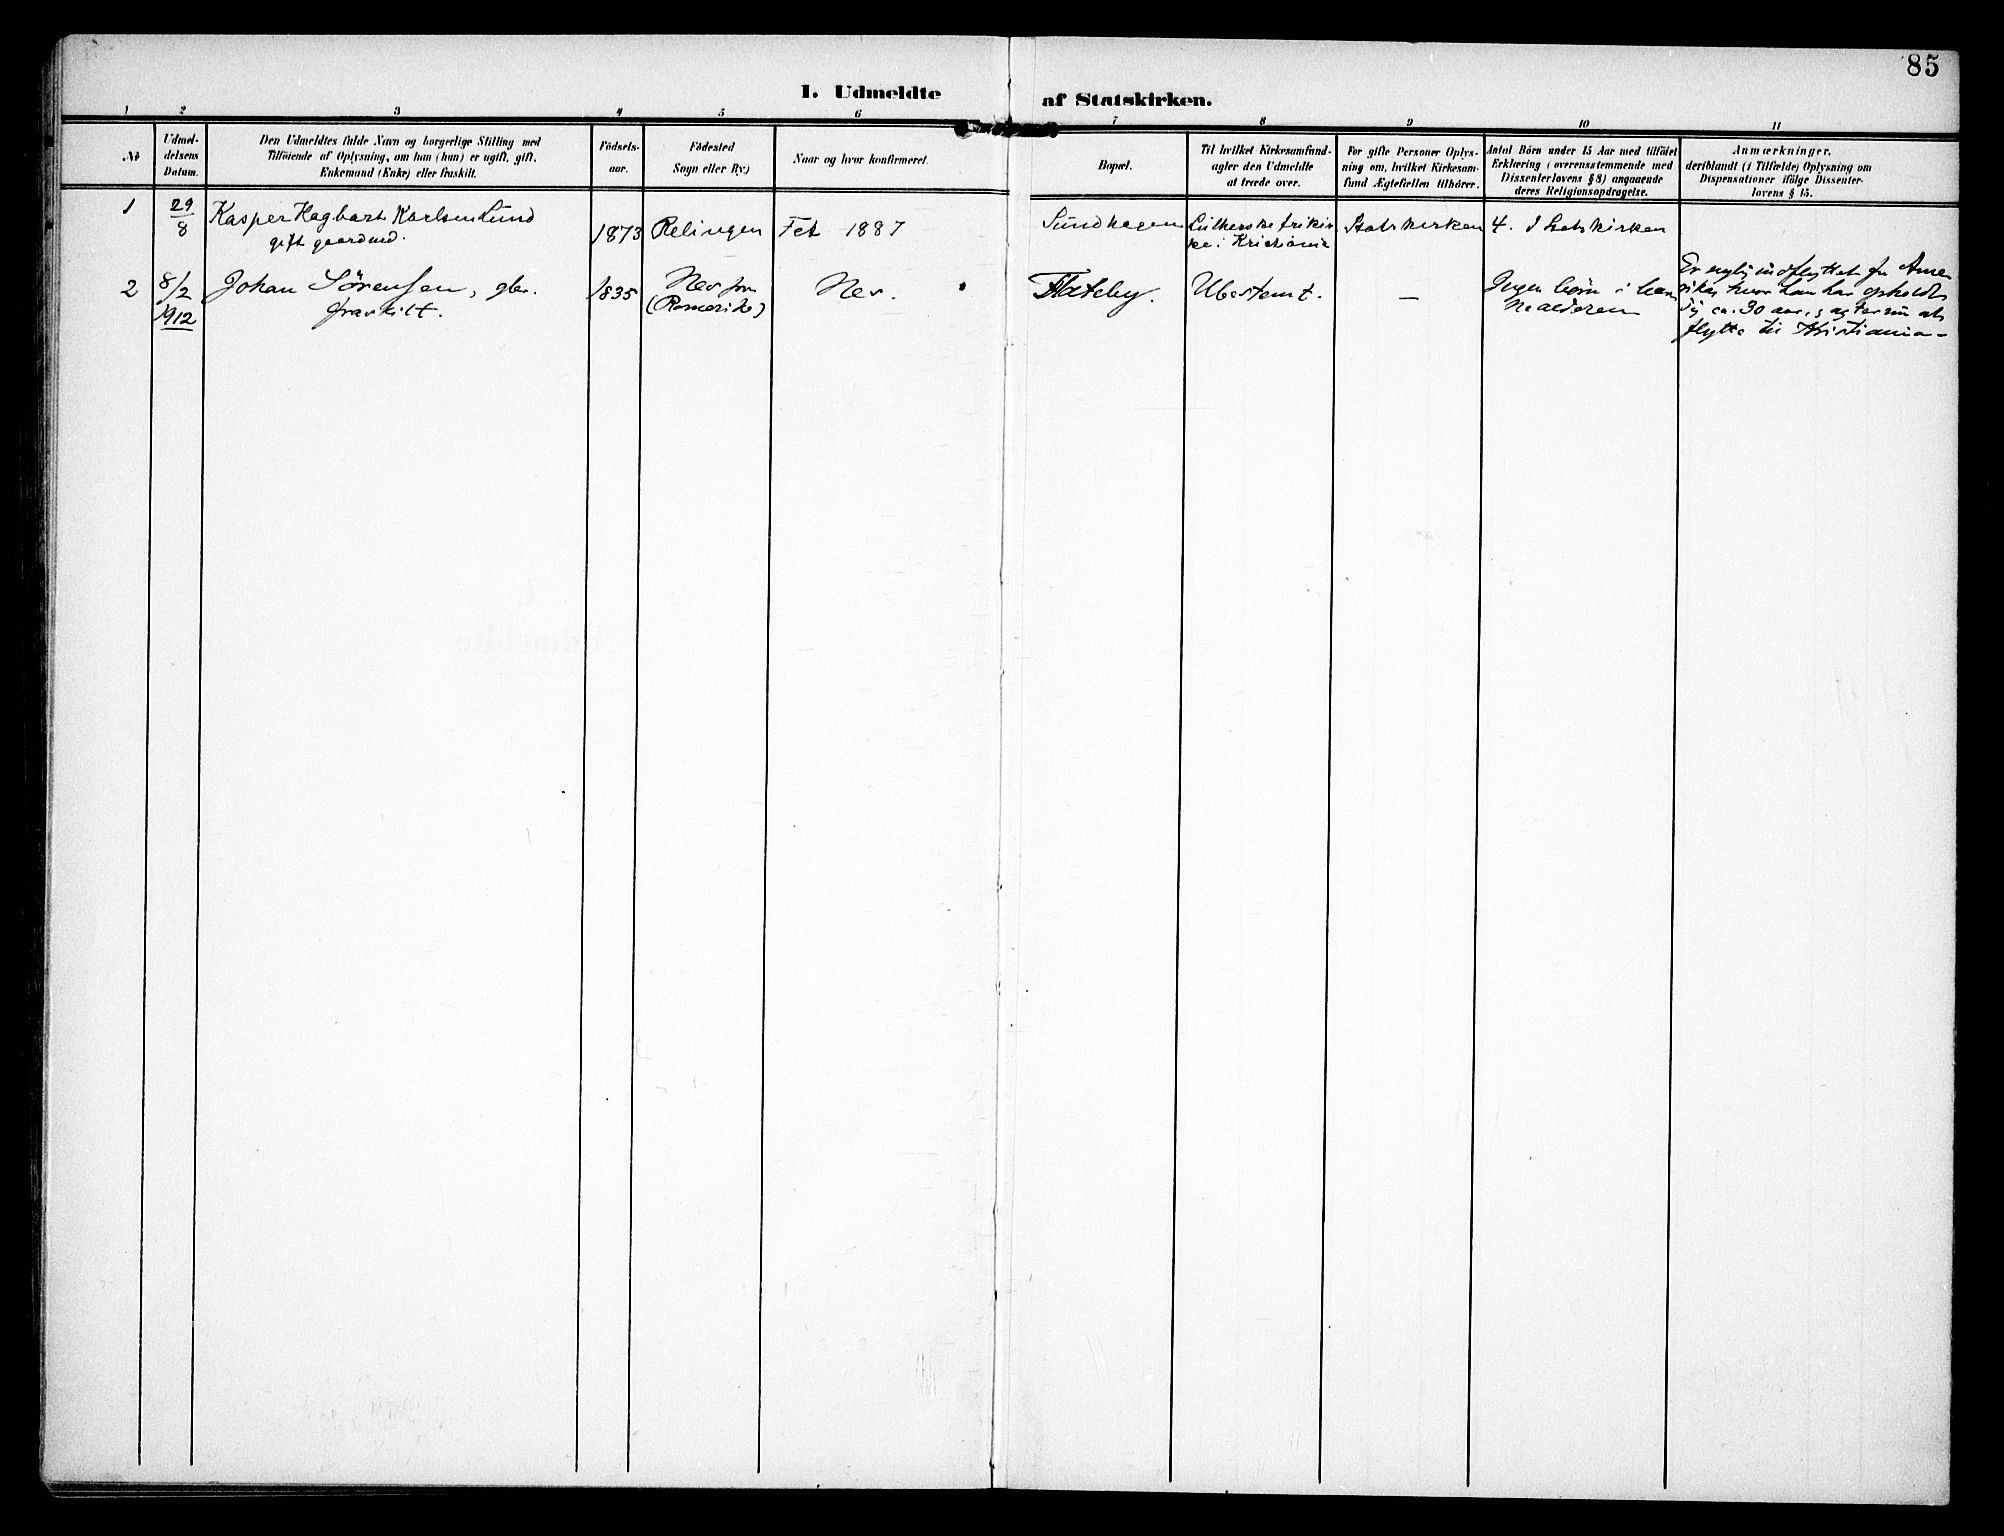 85
I. Udmeldte af Statskirken.
1 2 3 4 5 6 7 8 9 10 11
№
Udmel-
delsens
Datum.
Den Udmeldtes fulde Navn og borgerlige Stilling med
Tilföiende af Oplysning, om han (hun) er ugift, gift,
Enkemand (Enke) eller fraskilt.
Födsels-
aar.
Födested
Sogn eller By.)
Naar og hvor konfirmeret.
Bopæl.
Til hvilket Kirkesamfund-
agter den Udmeldte
at træde over.
For gifte Personer Oplys-
ning om, hvilket Kirkesam-
fund Ægtefællen tilhörer.
Antal Börn under 15 Aar med tilföiet
Erklæring (overensstemmende med
Dissenterlovens § 8) angaaende
deres Religionsopdragelse.
Anmærkninger,
deriblandt (i Tilfælde) Oplysning om
Dispensationer ifölge Dissenter-
lovens § 15.
1
29
8
Kasper Hagbart Karlsen Lund
gift gaardmd.
1873
Relingen
Fet 1887
Sundhagen
Lutherske frikir
ke i Kristiania
Statskirken
4. I Statskirken
2
8/2
1912
Johan Sörensen, gbr.
fraskilt.
1835
Nes
(Romerike)
Nes.
Flateby.
Ubestemt.
—
Ingen börn i
nealderen
Er nylig indflyttet fra Ame
rika, hvor han har opholdt
sig ca. 30 aar,
flytte til Kristiania-